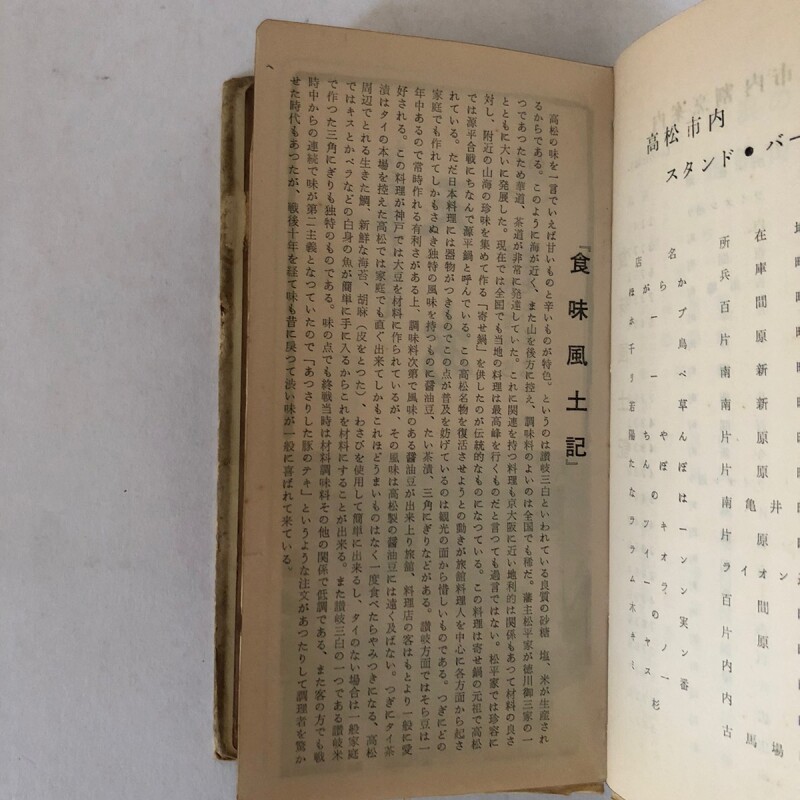 『食味風土記』
高松の味を一言でいえば甘いものと辛いものが特色、というのは讃岐三白といわれている良質の砂糖　塩、米が生産され
るからである。このように海が近く、また山を後方に控え、調味料のよいのは全国でも稀だ。藩主松平家が徳川御三家の一
つであつたため華道、茶道が非常に発達していた。これに関連を持つ料理も京大阪に近い地利的は関係もあつて材料の良さ
とともに大いに発展した。現在では全国でも当地の料理は最高峰を行くものだと言つても過言ではない。松平家では珍客に
対し、附近の山海の珍味を集めて作る「寄せ鍋」を供したのが伝統的なものになつている。この料理は寄せ鍋の元祖で高松
では源平合戦にちなんで源平鍋と呼んでいる。この高松名物を復活させようとの動きが旅館料理人を中心に各方面から起さ
れている。ただ日本料理には器物がつきものでこの点が普及を妨げているのは観光の面から惜しいものである。つぎにどの
家庭でも作れてしかもさぬき独特の風味を持つものに醤油豆、たい茶漬、三角にぎりなどがある。讃岐方面ではそら豆は一
年中あるので常時作れる有利さがある上、調味料次第で風味のある醤油豆が出来上り旅館、料理店の客はもとより一般に愛
好される。この料理が神戸では大豆を材料に作られているが、その風味は高松製の醤油豆には遠く及ばない。つぎにタイ茶
漬はタイの本場を控えた高松では家庭でも直ぐ出来てしかもこれほどうまいものはなく一度食べたらやみつきになる、高松
周辺でとれる生きた鯛、新鮮な海苔、胡麻（皮をとつた）、わさびを使用して簡単に出来るし、タイのない場合は一般家庭
ではキスとかベラなどの白身の魚が簡単に手に入るからこれを材料にすることが出来る。また讃岐三白の一つである讃岐米
で作つた三角にぎりも独特のものである。味の点でも終戦当時は材料調味料その他の関係で低調である、また客の方でも戦
時中からの連続で味が第二主義となつていたので「あつさりした豚のテキ」というような注文があつたりして調理者を驚か
せた時代もあつたが、戦後十年を経て味も昔に戻つて渋い味が一般に喜ばれて来ている。
高松市内
スタンド・バー
店名
所在
兵庫
百間
片原
南新
南新
片原
片原
南亀井
片原
ライオン
百間
片原
内
内
古馬場